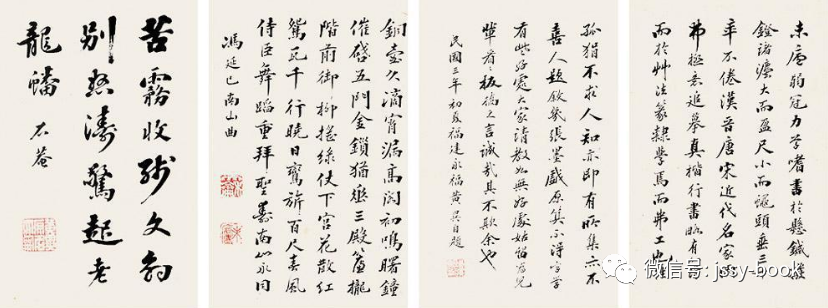 弱冠力学嗜書於懸鍼
大而盈尺小而蠅頭垂三
年不倦漢晉唐宋近代名家
弗極意追摹真楷行書略有
而於艸法篆隸學焉而弗工也
孤猶不求人知亦即有所集亦不
喜人題張墨戲原集小詩字學
有些好處大家請教如無好處姑留為兒
輩看之板橋之言誠哉其不欺余也
民國三年初夏福建永福黃自題
銅壺久滴宵漏高閣初鳴曙鐘
催啓五門金鎖猶垂三殿簾櫳
階前御柳搖綠仗下宮花散紅
鴛瓦千行曉日鸞旂百尺春風
侍臣舞蹈重拜聖壽南山永同
馮延巳南山曲
苦霧收殘文豹
別怒濤驚起老
龍蟠
微信号: jssy-book